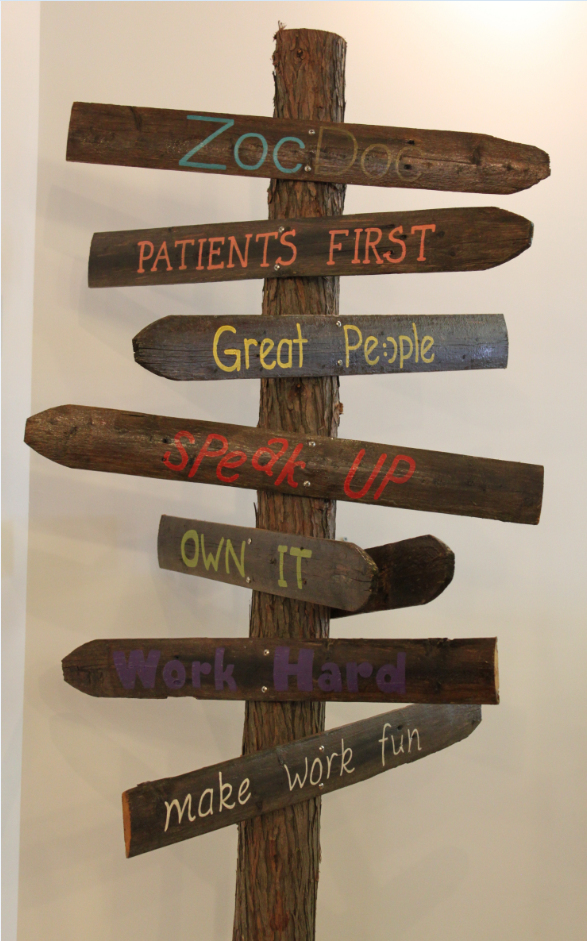 ZocDoc
PATIENTS FIRST
Great Pe:)ple
SPeak UP
OWN IT
Work Hard
make work fun